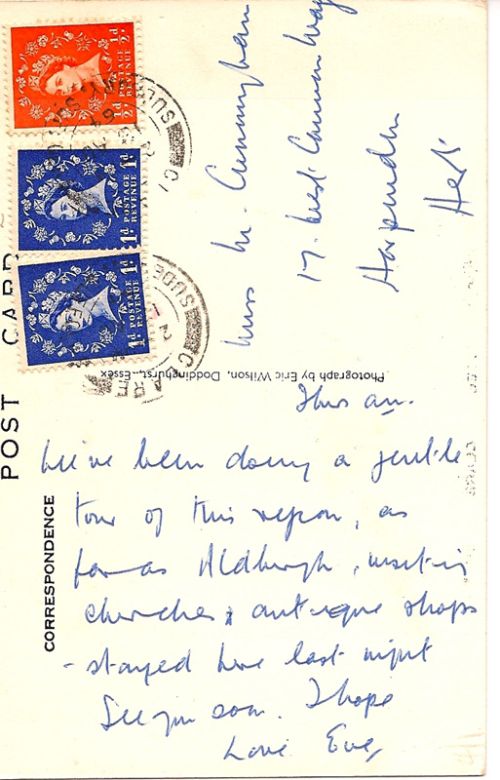 POST CARD
CORRESPONDENCE
½d POSTAGE REVENUE ½d
1d POSTAGE REVENUE 1d
1d POSTAGE REVENUE 1d
CLARE
SUDBURY
Miss M. Cunningham
17. West Common Way
Harpenden
Herts
Photograph by Eric Wilson, Doddinghurst, Essex
Thurs am.
We've been doing a gentle
tour of this region, as
far as Aldburgh, visiting
churches & antique shops
- stayed here last night
See you soon. I hope
Love Eve,